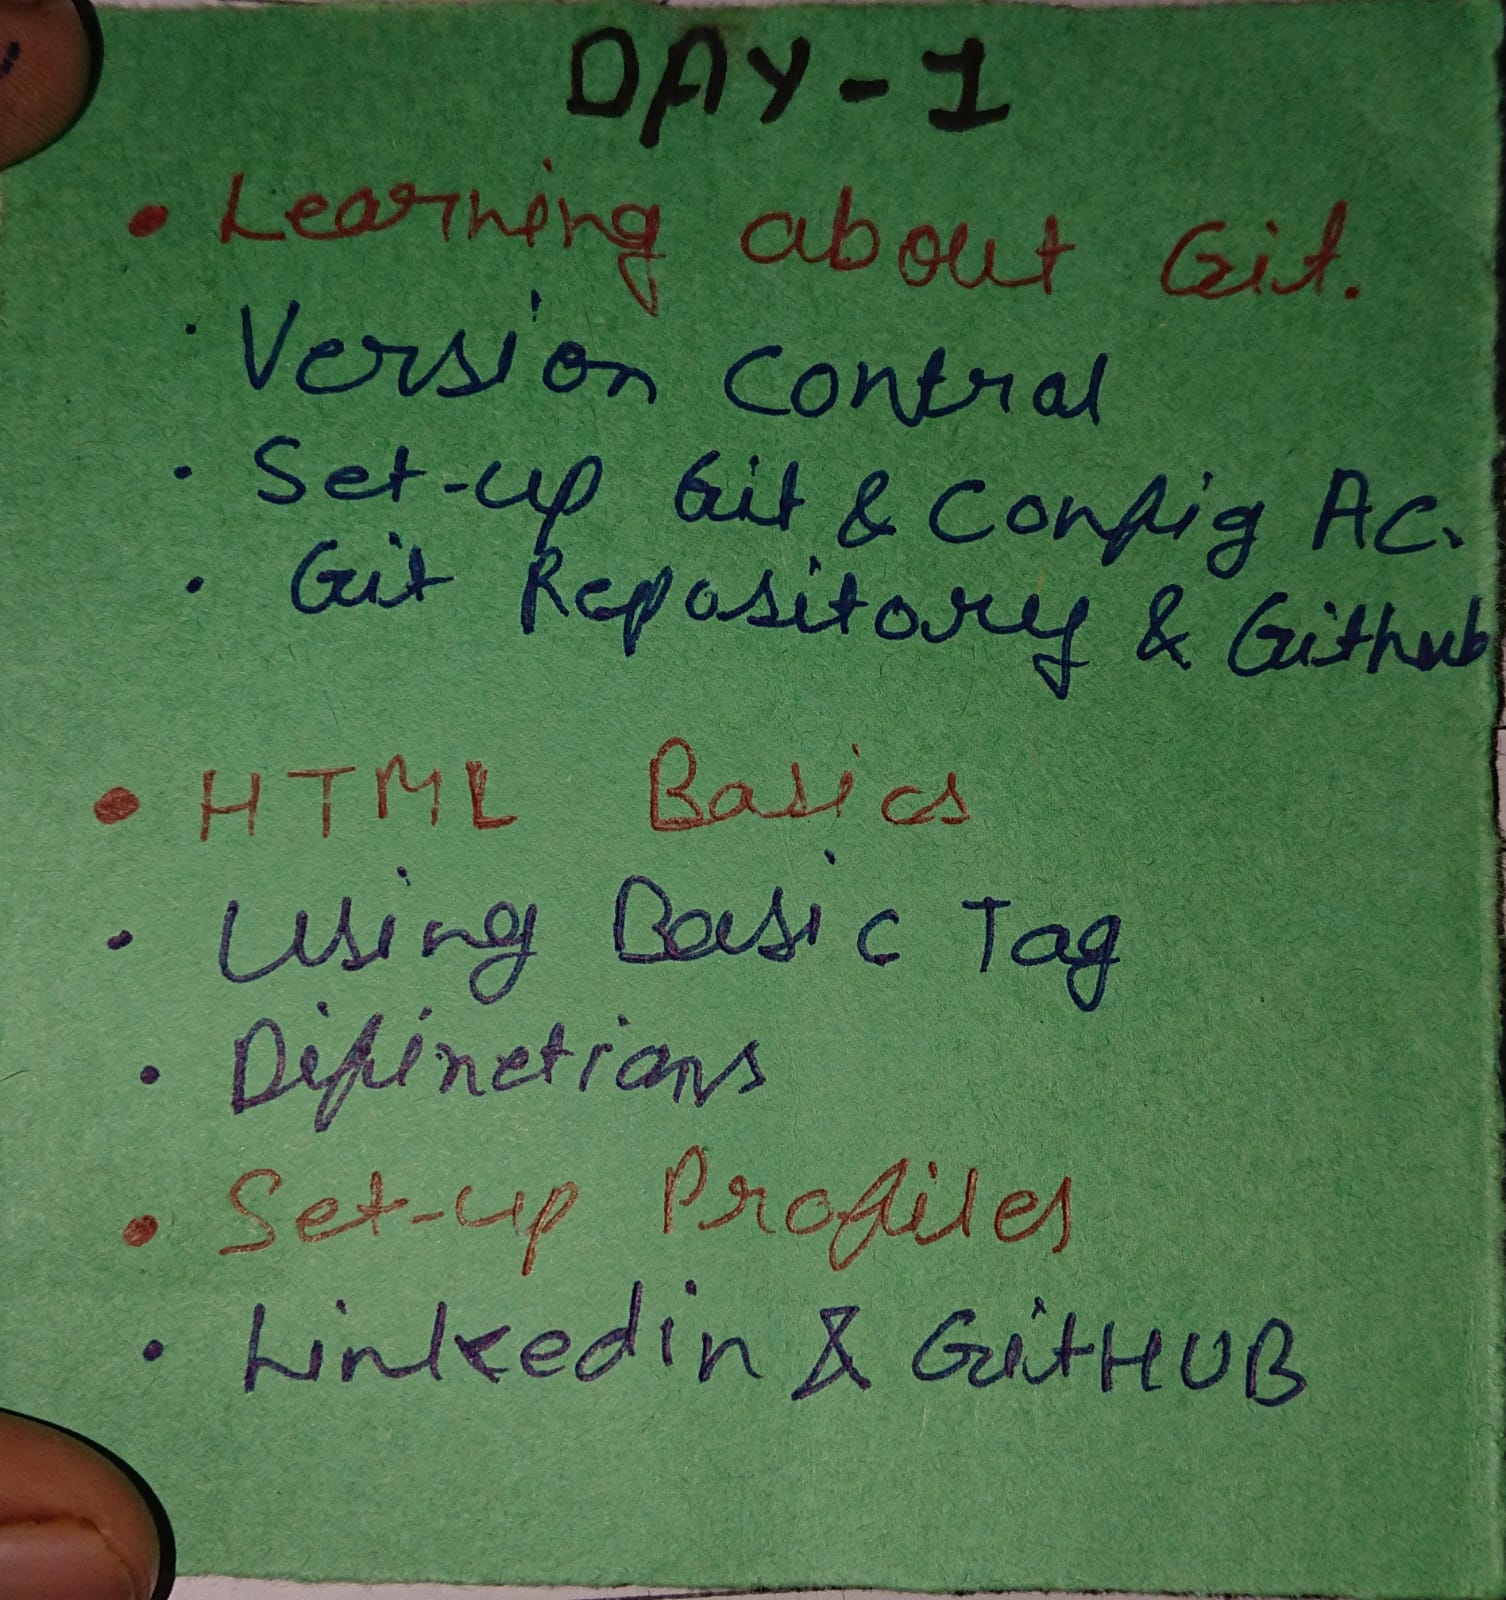 DAY-1
• Learning about Git.
• Version Control
• Set-up Git & Config AC.
• Git Repository & Github
• HTML Basics
• Using Basic Tag
• Difinetions
• Set-up Profiles
• Linkedin & GitHUB